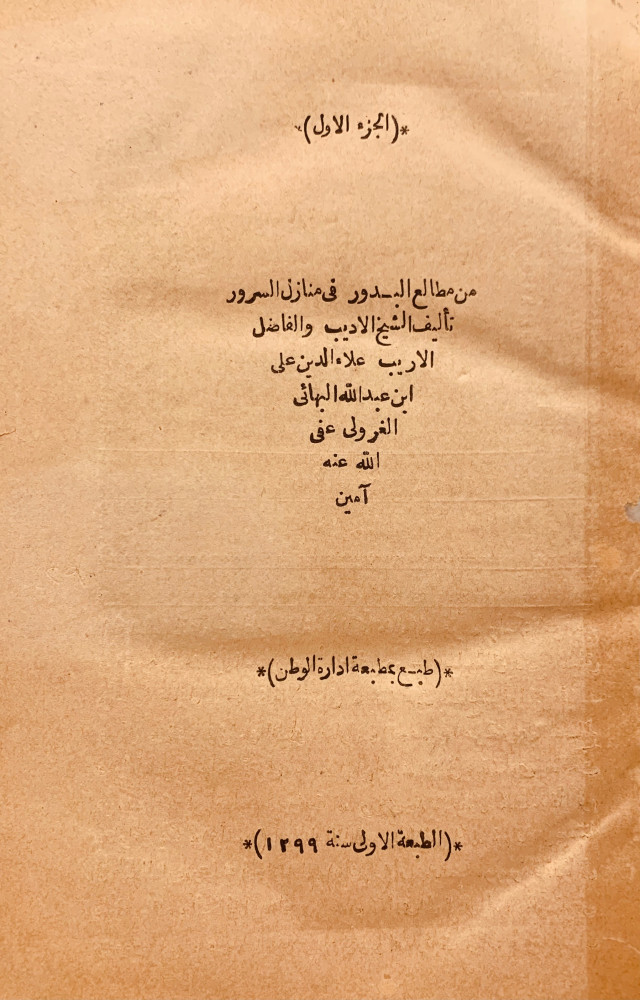 *(الجزء الاول)*
من مطالع البـدور فى منازل السرور
تأليف الشيخ الاديب والفاضل
الاريب علاء الدين على
ابن عبدالله البهائى
الغرولى عفى
الله عنه
آمين
*(طبـع بمطبعة ادارة الوطن)*
*(الطبعة الاولى سنة ١٢٩٩)*